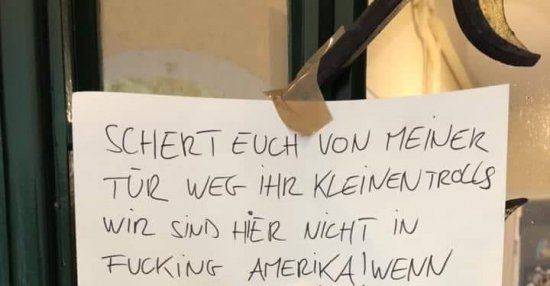 SCHERT EUCH VON MEINER
TÜR WEG IHR KLEINEN TROLLS
WIR SIND HIER NICHT IN
FUCKING AMERIKA! WENN